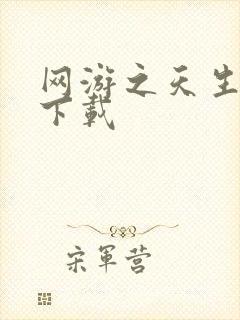 网游之天生
下载
宋軍营